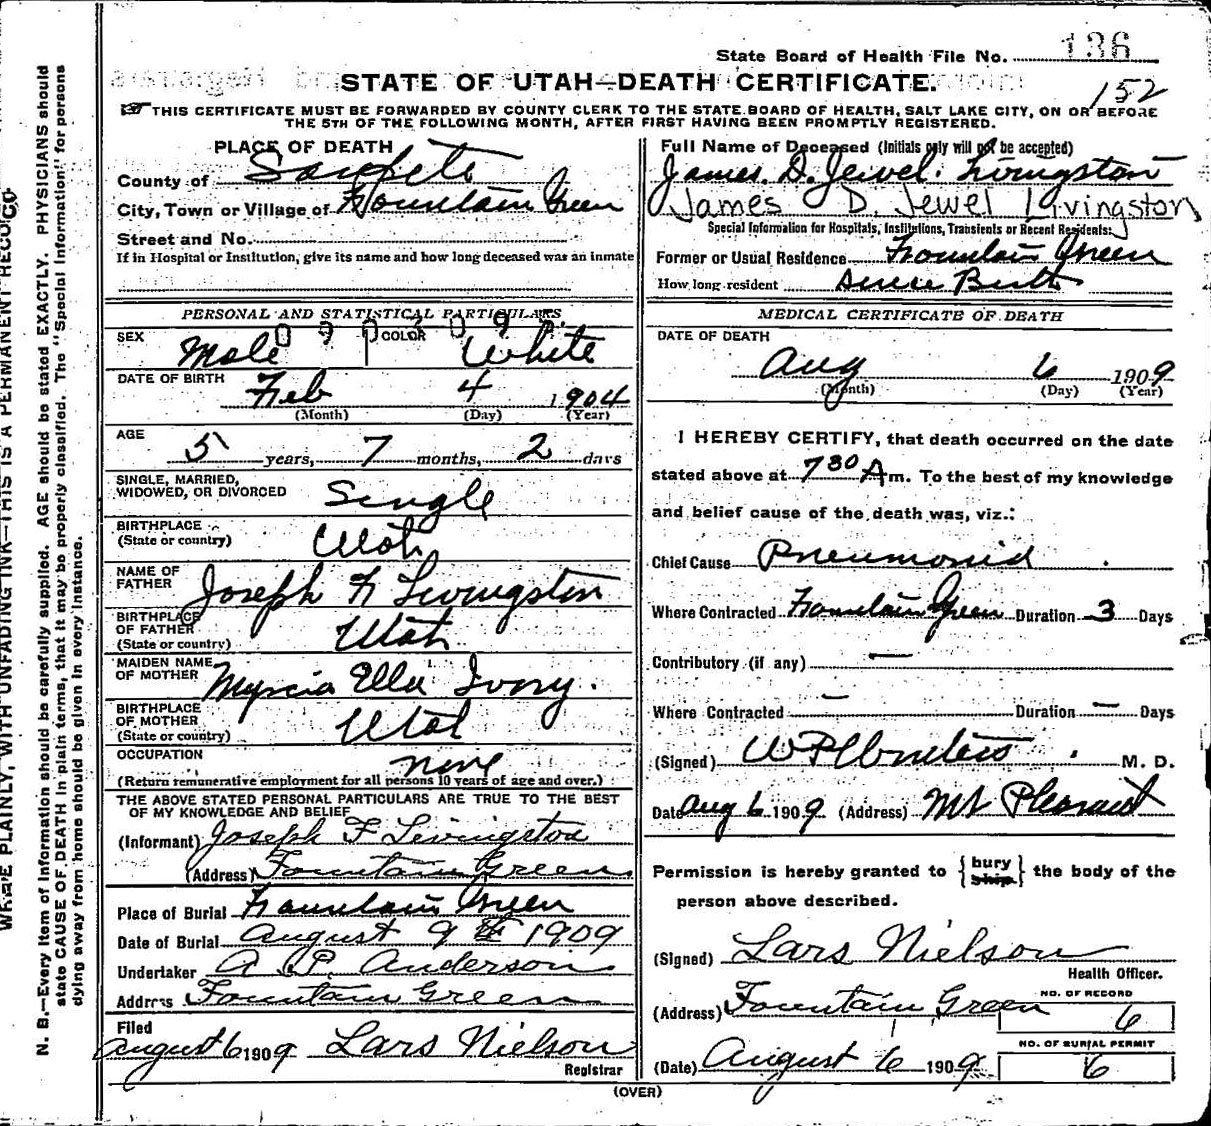 State Board of Health File No. 136
STATE OF UTAH—DEATH CERTIFICATE.
152
THIS CERTIFICATE MUST BE FORWARDED BY COUNTY CLERK TO THE STATE BOARD OF HEALTH, SALT LAKE CITY, ON OR BEFORE
THE 5TH OF THE FOLLOWING MONTH, AFTER FIRST HAVING BEEN PROMPTLY REGISTERED.
PLACE OF DEATH
County of Sanpete
City, Town or Village of Fountain Green
Street and No.
If in Hospital or Institution, give its name and how long deceased was an inmate
PERSONAL AND STATISTICAL PARTICULARS.
SEX Male COLOR White
DATE OF BIRTH Feb 4 1904
(Month) (Day) (Year)
AGE 5 years, 7 months, 2 days
SINGLE, MARRIED,
WIDOWED, OR DIVORCED Single
BIRTHPLACE
(State or country) Utah
NAME OF
FATHER Joseph F Livingston
BIRTHPLACE
OF FATHER
(State or country) Utah
MAIDEN NAME
OF MOTHER Myrcia Ella Ivory.
BIRTHPLACE
OF MOTHER
(State or country) Utah
OCCUPATION none
(Return remunerative employment for all persons 10 years of age and over.)
THE ABOVE STATED PERSONAL PARTICULARS ARE TRUE TO THE BEST
OF MY KNOWLEDGE AND BELIEF
(Informant) Joseph F Livingston
(Address) Fountain Green
Place of Burial Fountain Green
Date of Burial August 9th 1909
Undertaker A P. Anderson
Address Fountain Green
Filed
August 6 1909 Lars Nielson
Registrar
Full Name of Deceased (Initials only will not be accepted)
James. D. Jewel. Livingston
James D. Jewel Livingston
Special Information for Hospitals, Institutions, Transients or Recent Residents:
Former or Usual Residence Fountain Green
How long resident Since Birth
MEDICAL CERTIFICATE OF DEATH
DATE OF DEATH
Aug 6 1909
(Month) (Day) (Year)
I HEREBY CERTIFY, that death occurred on the date
stated above at 7 30 A m. To the best of my knowledge
and belief cause of the death was, viz.:
Chief Cause Pneumonia
Where Contracted Fountain Green Duration 3 Days
Contributory (if any) —
Where Contracted — Duration — Days
(Signed) M. D.
Date Aug 6 1909 (Address) Mt Pleasant
Permission is hereby granted to { bury ship } the body of the
person above described.
(Signed) Lars Nielson
Health Officer.
(Address) Fountain Green
NO. OF RECORD
6
(Date) August 6 1909
NO. OF BURIAL PERMIT
6
(OVER)
N. B.—Every item of Information should be carefully supplied. AGE should be stated EXACTLY. PHYSICIANS should
state CAUSE OF DEATH in plain terms, that it may be properly classified. The "Special Information" for persons
dying away from home should be given in every instance.
PLAINLY, WITH UNFADING INK—THIS IS A PERMANENT RECORD